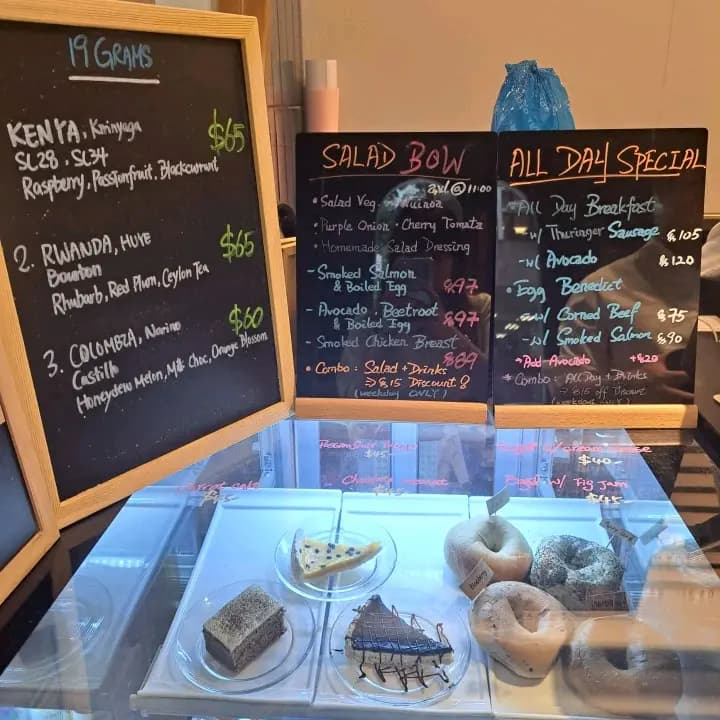 19 GRAMS
KENYA, Kirinyaga $65
SL28 . SL34
Raspberry, Passionfruit, Blackcurrant
2. RWANDA, HUYE $65
Bourbon
Rhubarb, Red Plum, Ceylon Tea
$60
3. COLOMBIA, Narino
Castillo
Honeydew Melon, Milk Choc, Orange Blossom
SALAD BOW
@ 11:00
• Salad Veg. Quinoa
• Purple Onion . Cherry Tomato
• Homemade Salad Dressing
- Smoked Salmon
& Boiled Egg $97
- Avocado . Beetroot
& Boiled Egg $97
- Smoked Chicken Breast $89
• Combo : Salad + Drinks
⇒ $15 Discount
(weekday ONLY)
ALL DAY SPECIAL
• All Day Breakfast
- w/ Thuringer Sausage $105
- w/ Avocado $120
• Egg Benedict
- w/ Corned Beef $75
- w/ Smoked Salmon $90
* Add Avocado +$20
* Combo : All Day + Drinks
⇒ $15 off Discount
(weekdays ONLY)
$45
$40
Bagel w/ Fig Jam
$45